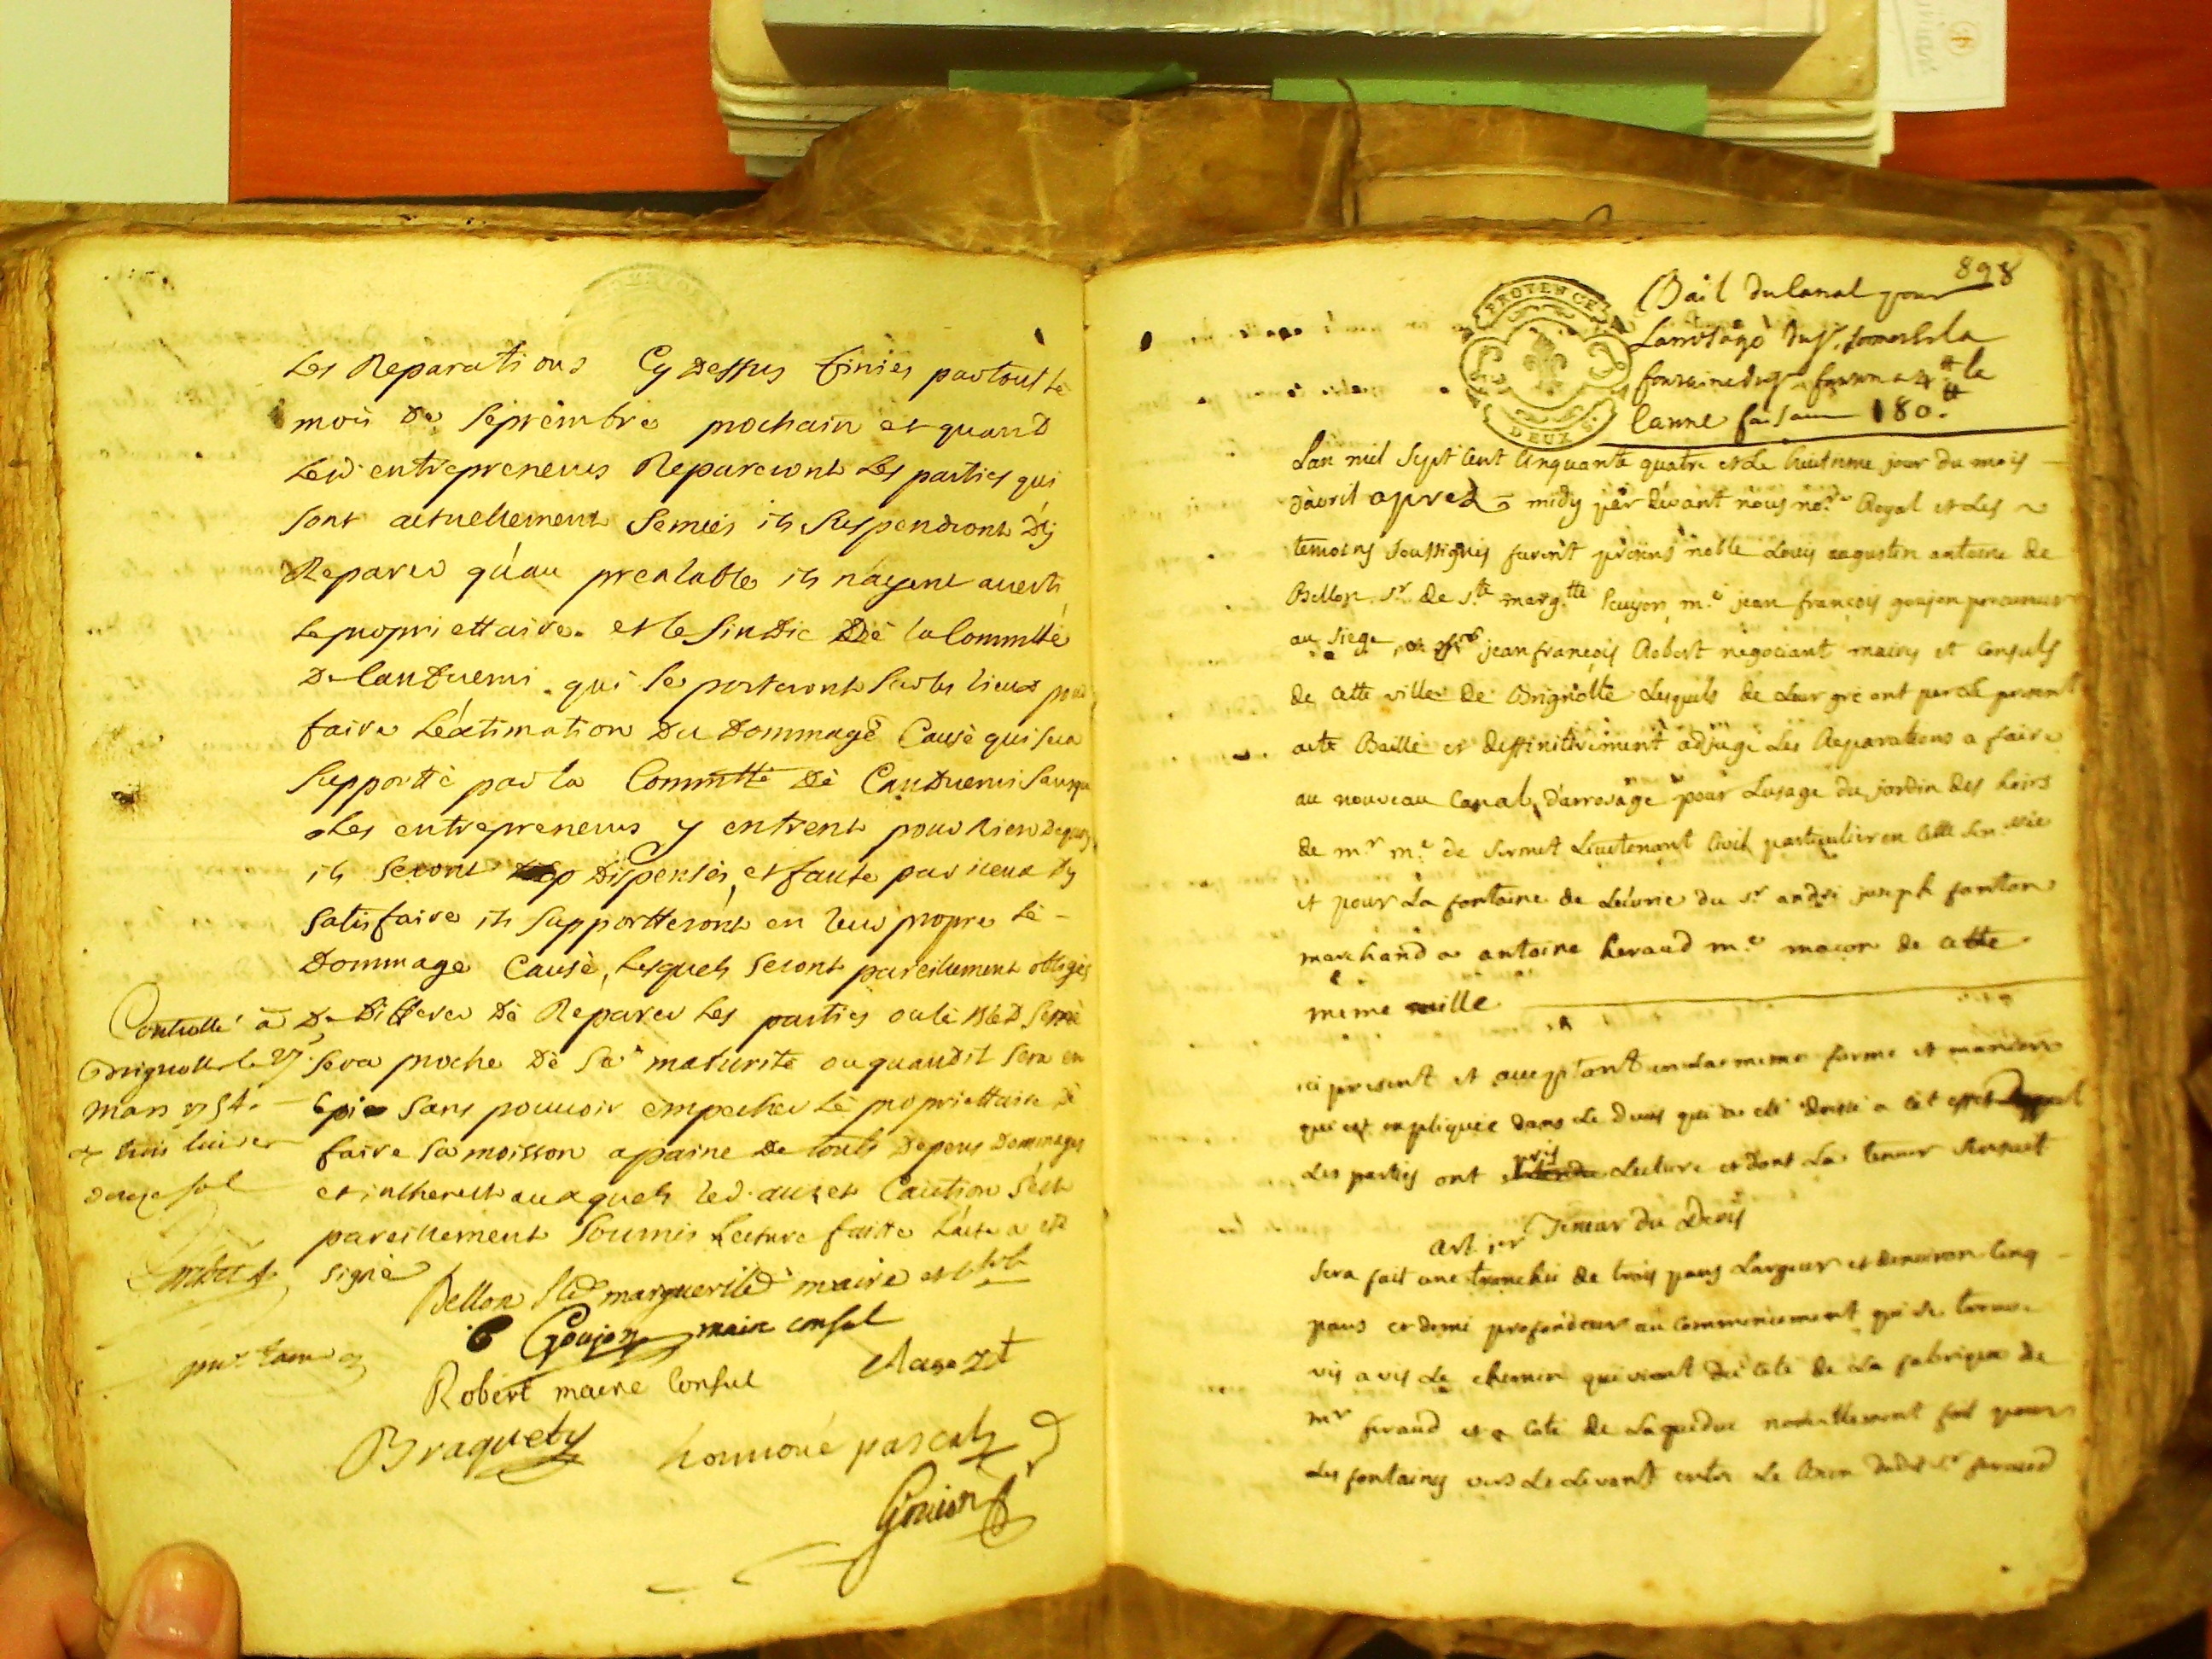 Les Reparations Cy Dessus finies partout le
mois de Septembre prochain et quand
Led. entrepreneurs Repareront Les parties qui
sont actuellement Semées ils Suspendront D'y
Reparer qu'au prealable ils n'ayent averti
Le propriettaire et le Sindic Dé la Commtté
De Canduemi qui se porteront Sur les lieux pour
faire L'éxtimation Du Dommagé Causé qui sera
Supportté par la Commtté Dé Canduemi Sans que
Les entrepreneurs y entrent pour Rien Dequoy
ils Seront Dispensés, et faute par iceux D'y
Satisfaire ils Supportteront en leur propre Lé
Dommage Causé, Lesquels Seront pareillement obligés
De Differer Dé Reparer Les parties ou lé Bled Semé
Sera proche Dé Sa maturité ou quand il Sera en
Epi Sans pouvoir empecher Lé propriettaire dé
faire Sa moisson a paine De touts Depens Dommages
et intherest auxquels led. et Caution S'est
pareillement Soumis Lecture faitte L'acte a eté
Signé
Controllé a
Brignolle le 27
mars 1754.
Bellon Ste marguerite maire
Goujon maire consul
Robert maire Consul
Braquety honnoré pascal
Goujon
898
PROVENCE
DEUX S.
Bail du Canal pour
Larrosage
fontaine 4 tt la
Canne faisant 180 tt
Lan mil Sept Cent Cinquante quatre et Le huitieme jour du mois
d'avril apres midy par devant nous nore Royal et Les
temoins Soussignés furent présens noble Louis augustin antoine de
Bellon Sr de Ste margtte Ecuyer, me jean françois goujon procureur
au Siege, et jean françois Robert negociant maires et Consuls
de Cette ville de Brignolle Lesquels de Leur gré ont par Le present
acte Baillé et deffinitivement adjugé Les Reparations a faire
au nouveau Canal d'arrosage pour Lusage du jardin des hoirs
de mr me de Sermet Lieutenant Civil particulier en Cette
et pour La fontaine de Leurie du sr andré joseph fanton
marchand a antoine heraud me maçon de Cette
meme ville
ici present et acceptant en La meme forme et maniere
qui est expliquée dans Le devis qui a eté dressé a Cet effet Duquel
Les parties ont pris Lecture et dont La teneur Sensuit
Teneur du Devis
Art. 1er
Sera fait une tranchée de trois pans Largeur et denviron Cinq
pans et demi profondeur au Commencement qui se trouve
vis a vis Le chemin qui vient du coté de La fabrique de
Mr feraud et a Coté de Laqueduc nouvellement fait pour
Les fontaines vers Le Levant entre Le bien dudit Sr feraud